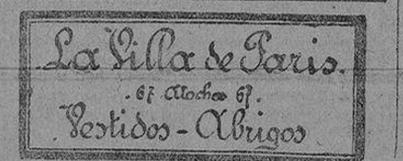 La Villa de Paris.
. 67 Atocha 67.
Vestidos - Abrigos